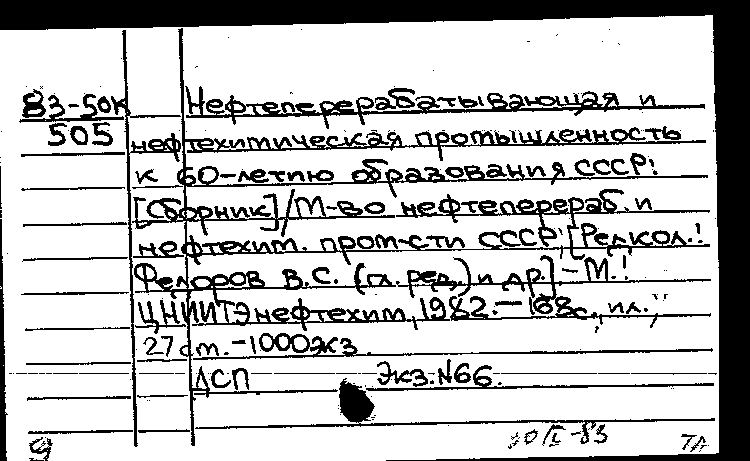 83-50к Нефтеперерабатывающая и
505 нефтехимическая промышленность
к 60-летию образования СССР:
[Сборник]/М-во нефтеперераб. и
нефтехим. пром-сти СССР; [Редкол.:
Федоров В.С. (гл. ред.) и др.].-М.:
ЦНИИТЭнефтехим, 1982.-168с., ил.;
27 см.-1000экз.
ДСП Экз.№66.
30/I-83